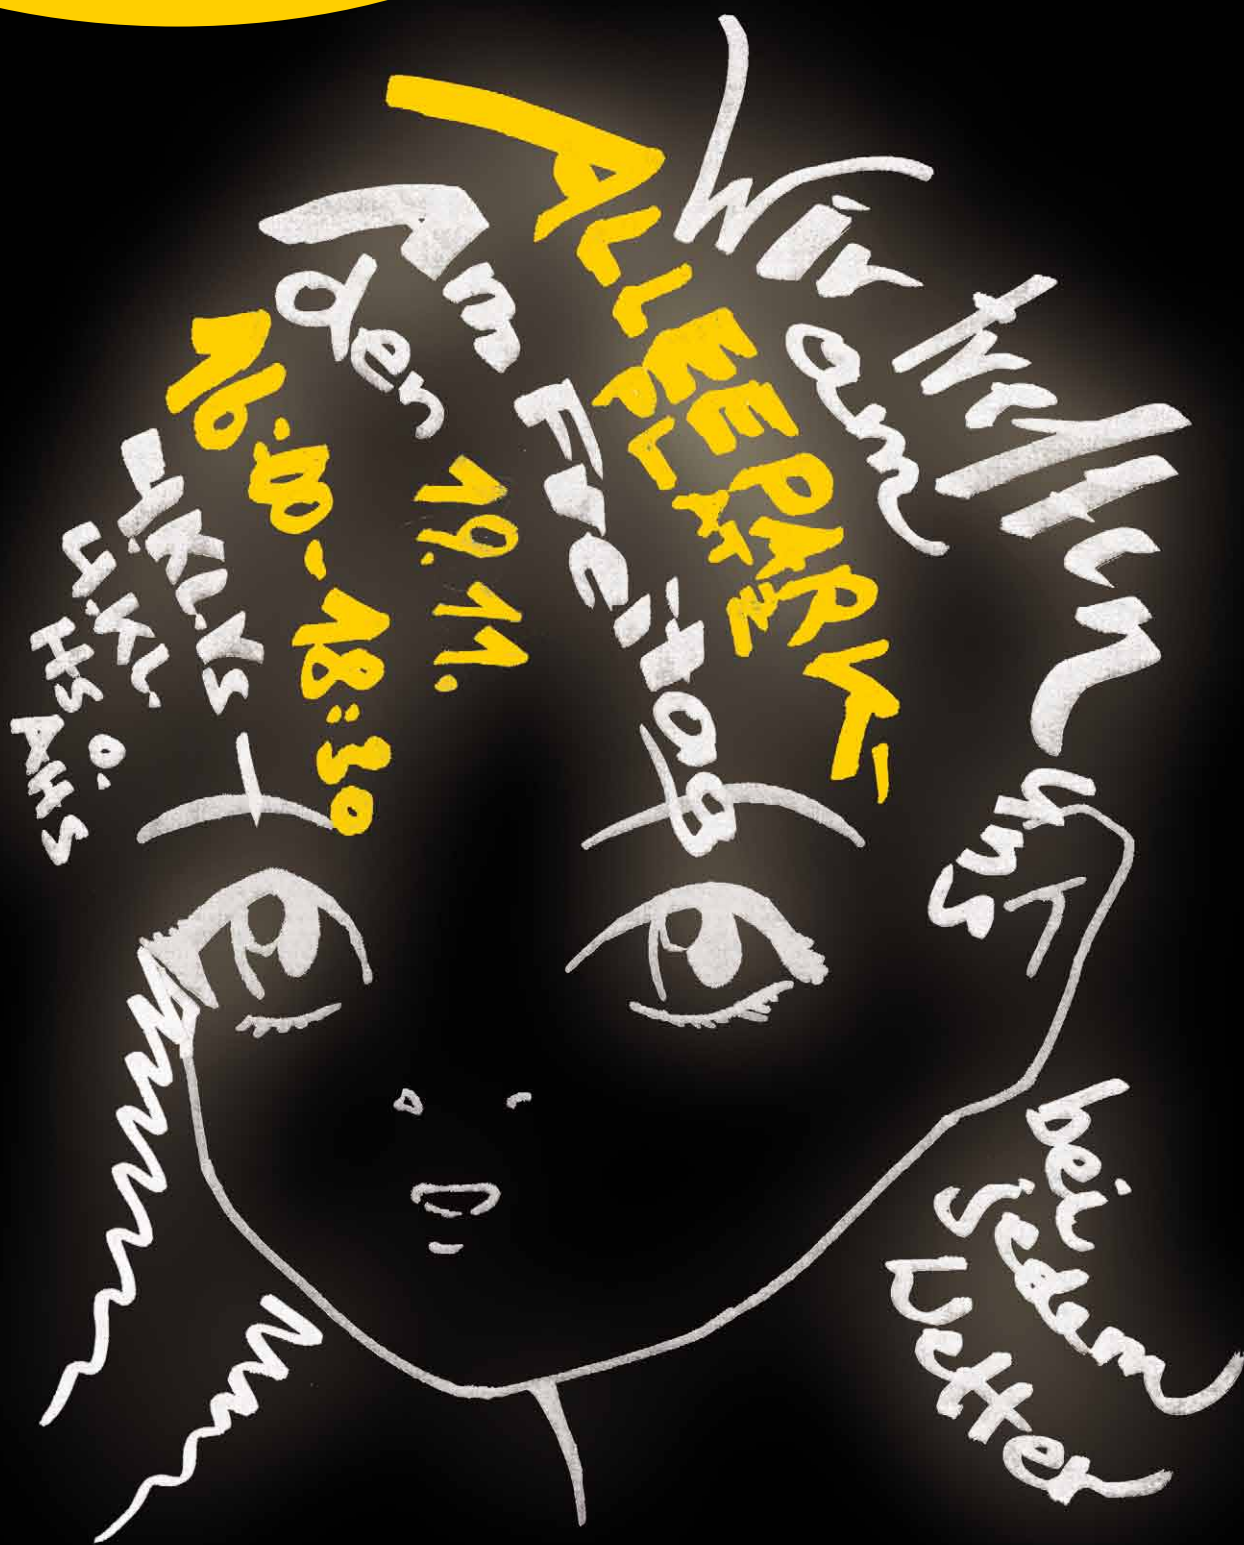 Wir treffen uns
am
ALLEEPARK-
PLATZ
Am Freitag
den 19.11.
16:00-18:30
4.Kl. VS –
4.Kl.
HS o.
AHS
bei
jedem
Wetter